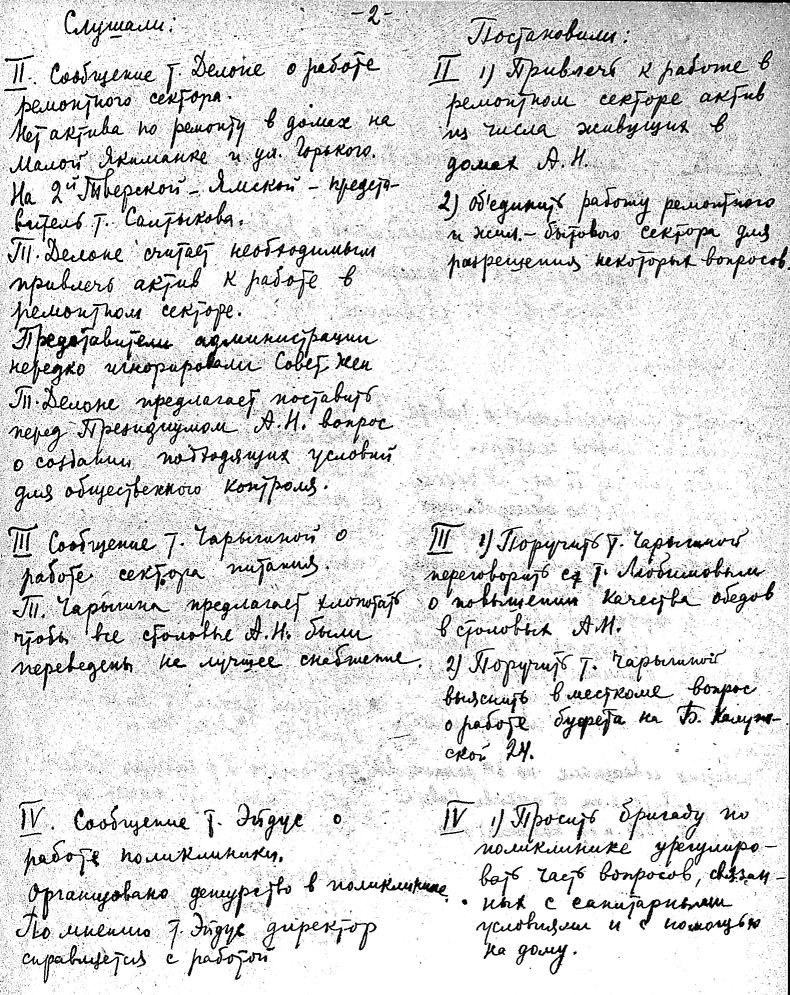 -2-
Слушали:
II. Сообщение т. Делоне о работе
ремонтного сектора.
Нет актива по ремонту в домах на
Малой Якиманке и ул. Горького.
На 2й Тверской-Ямской - предста-
витель т. Салтыкова.
Т. Делоне считает необходимым
привлечь актив к работе в
ремонтном секторе.
Представители администрации
нередко игнорировали Совет жен
Т. Делоне предлагает поставить
перед Президиумом А.Н. вопрос
о создании подходящих условий
для общественного контроля.
III Сообщение т. Чарыгиной о
работе сектора питания.
Т. Чарыгина предлагает хлопотать
чтобы все столовые А.Н. были
переведены на лучшее снабжение.
IV. Сообщение т. Эйдус о
работе поликлиники.
Организовано дежурство в поликлинике
По мнению т. Эйдус директор
справляется с работой
Постановили:
II 1) Привлечь к работе в
ремонтном секторе актив
из числа живущих в
домах А.Н.
2) Об'единить работу ремонтного
и жил.-бытового сектора для
разрещения некоторых вопросов.
III 1) Поручить т. Чарыгиной
переговорить с т. Любимовым
о повышении качества обедов
в столовых А.Н.
2) Поручить т. Чарыгиной
выяснить в месткоме вопрос
о работе буфета на Б. Калуж-
ской 24.
IV 1) Просить бригаду по
поликлинике урегулиро-
вать часть вопросов, связан-
ных с санитарными
условиями и с помощью
на дому.